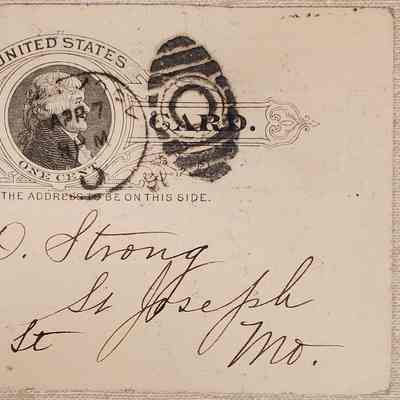 UNITED STATES
APR 7
M
CARD.
ONE CENT
THE ADDRESS TO BE ON THIS SIDE.
O. Strong
St Joseph
St Mo.